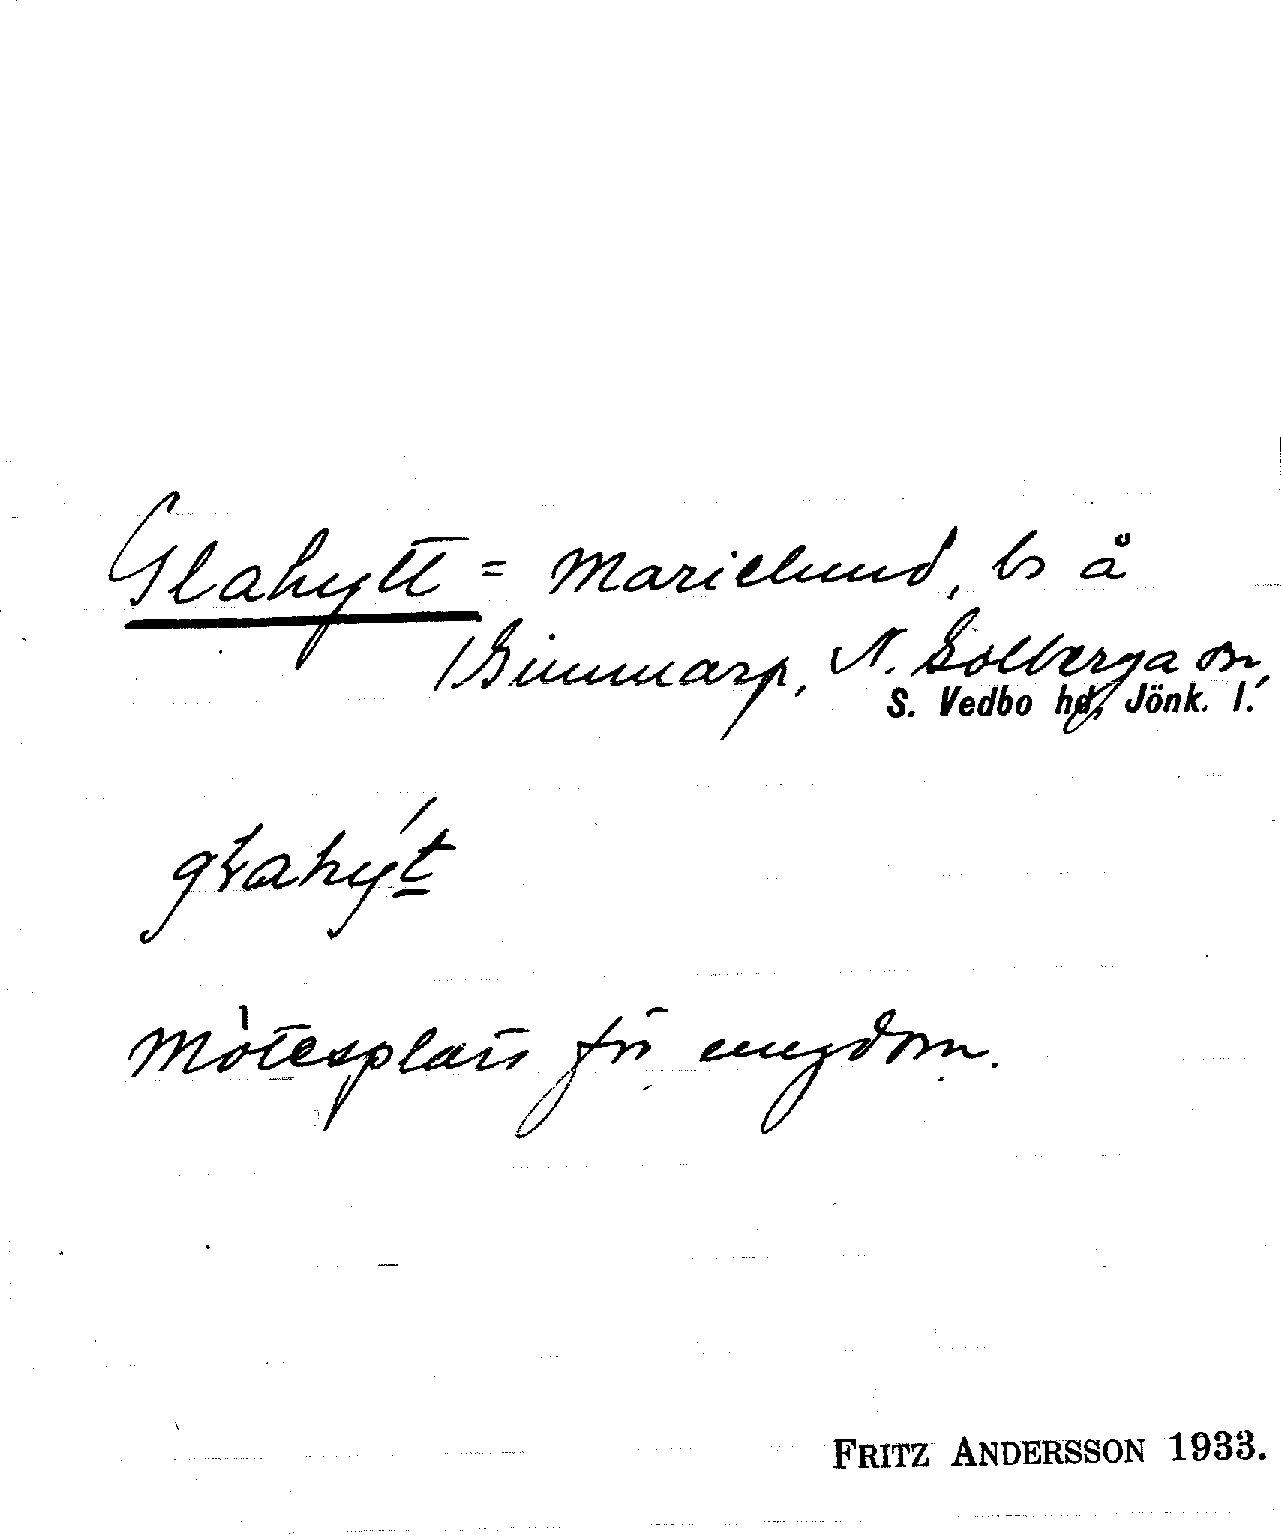 Glahytt = Marielund, ls å
Bimmarp, N. Solberga sn,
S. Vedbo hd, Jönk. l.
glahýt
Mötesplats för ungdom.
FRITZ ANDERSSON 1933.